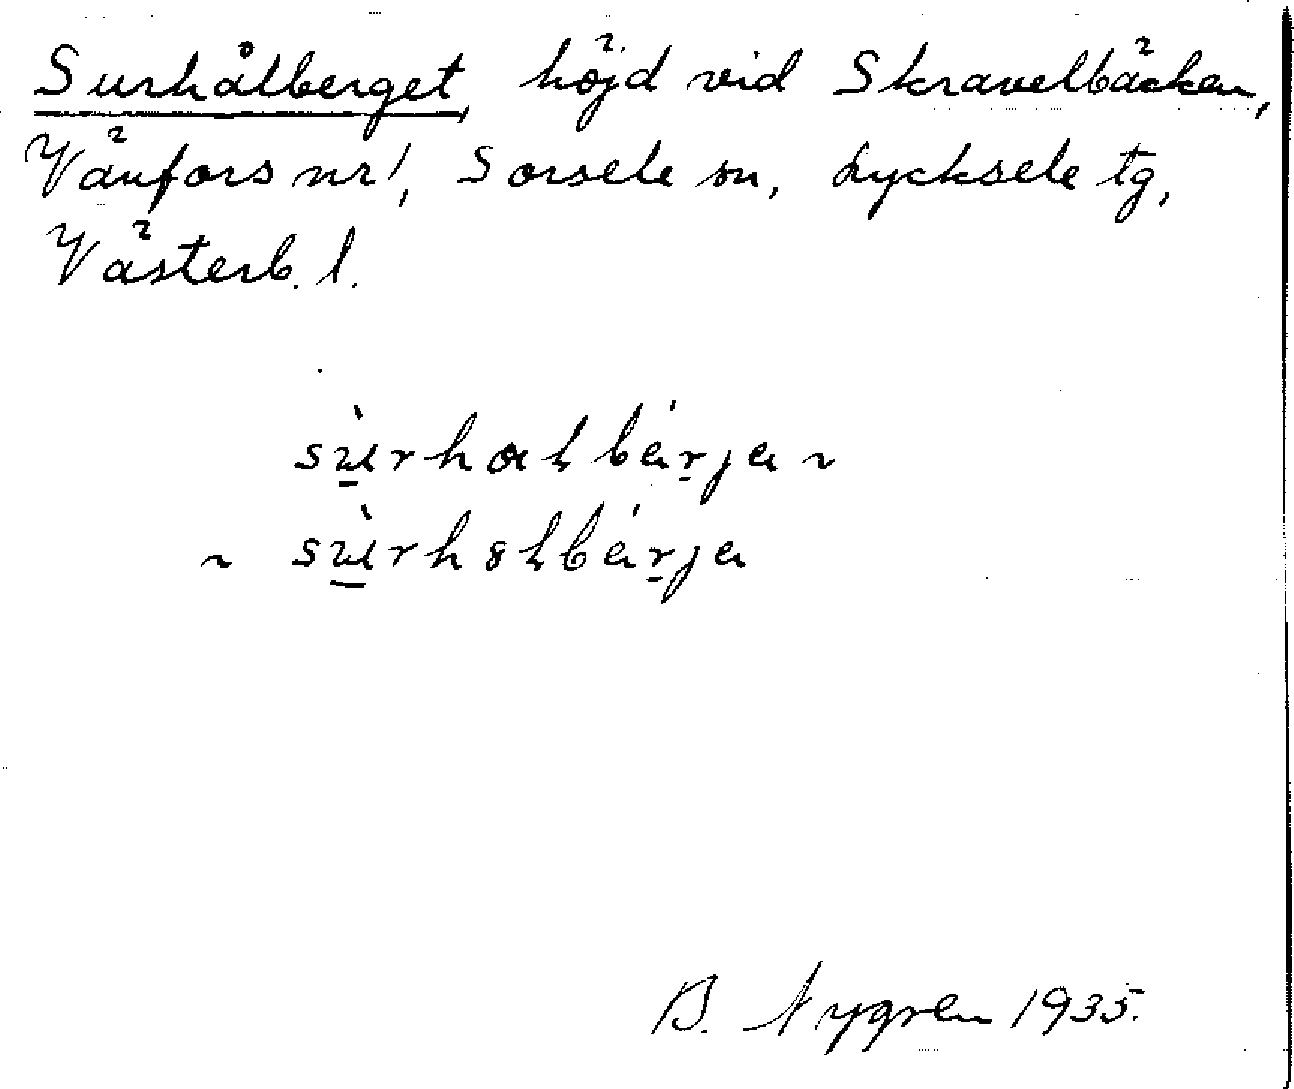 Surhålberget, höjd vid Skravelbäcken,
Vänfors nr 1, Sorsele sn, Lycksele tg,
Västerb. l.
B. Nygren 1935.